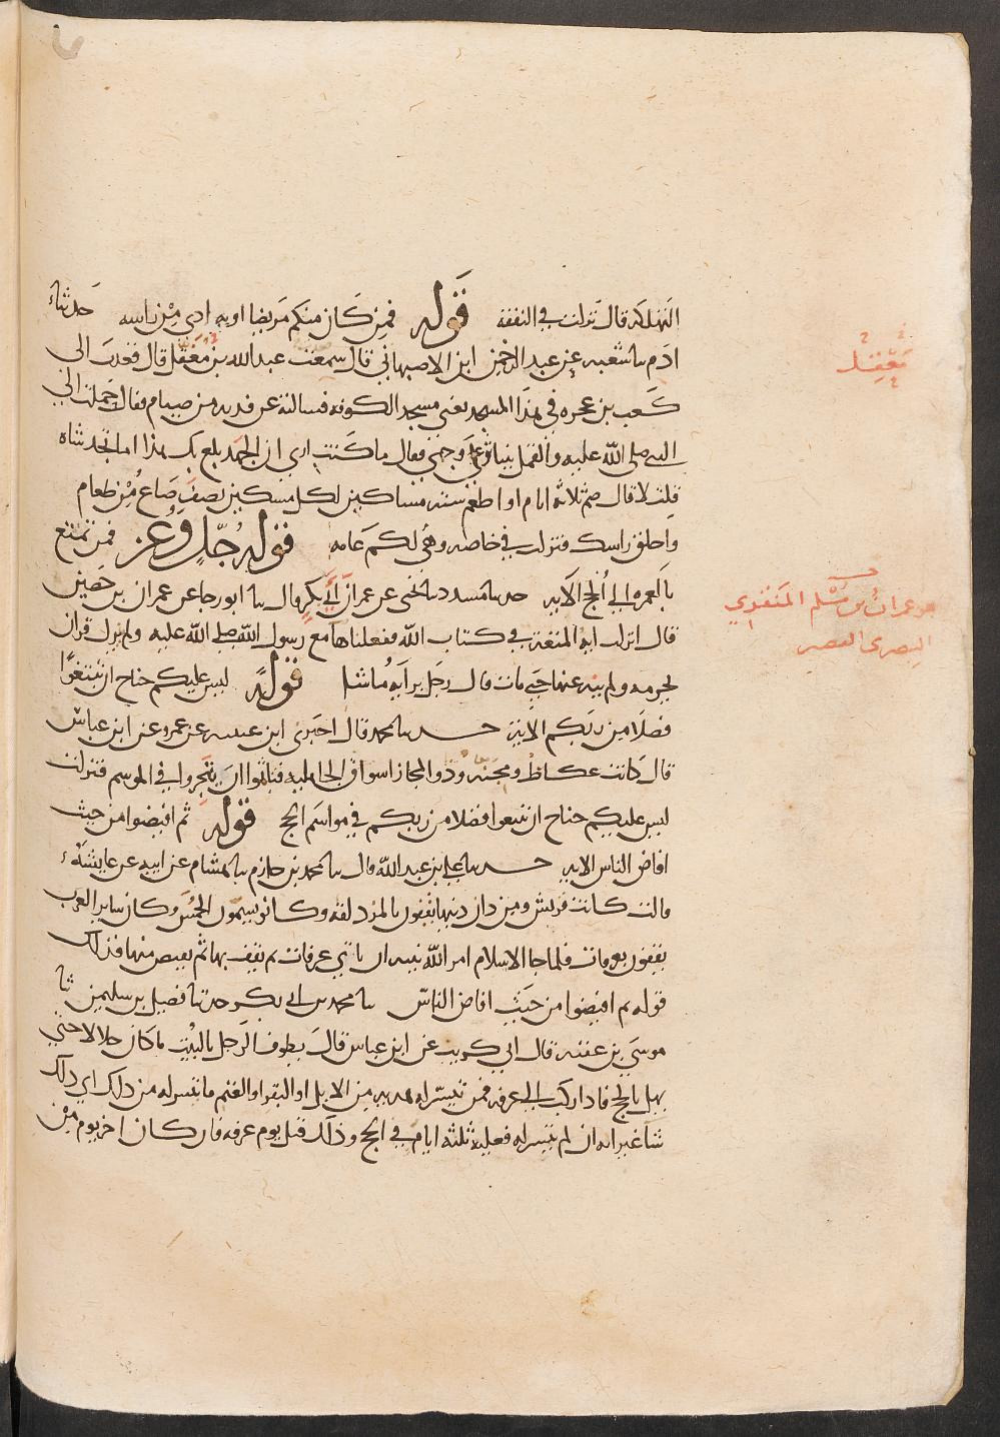 التهلكة قال نزلت في النفقة قوله فمن كان منكم مريضا او به اذى من راسه حدثنا
ادم سا شعبه عن عبد الرحمن ابن الاصبهاني قال سمعت عبد الله بن مغفل قال قعدت الى
كعب بن عجره في هذا المسجد يعني مسجد الكوفه فسالته عن فديه من صيام فقال حملت الى
النبي صلى الله عليه والقمل يتناثر على وجهي فقال ما كنت ارى ان الجهد بلغ بك هذا اما تجد شاه
قلت لا قال صم ثلاثة ايام او اطعم سته مساكين لكل مسكين نصف صاع من طعام
واحلق راسك فنزلت في خاصه وهي لكم عامه قوله جل وعز فمن تمتع
بالعمره الى الحج الايه حدسا مسدد سا يحيى عن عمران ابي بكر قال سا ابو رجا عن عمران بن حصين
قال انزلت ايه المتعة في كتاب الله ففعلناها مع رسول الله صلى الله عليه ولم ينزل قران
يحرمه ولم ينه عنها حتى مات قال رجل برايه ما شا قوله ليس عليكم جناح ان تبتغوا
فضلا من ربكم الاية حدسا محمد قال اخبرني ابن عيينه عن عمرو عن ابن عباس
قال كانت عكاظ ومجنه وذو المجاز اسواق الجاهليه فتاثموا ان يتجروا في المواسم فنزلت
ليس عليكم جناح ان تبتغوا فضلا من ربكم في مواسم الحج قوله ثم افيضوا من حيث
افاض الناس الايه حدسا علي بن عبد الله قال سا محمد بن حازم سا هشام عن ابيه عن عايشة
قالت كانت قريش ومن دان دينها يقفون بالمزدلفه وكانو يسمون الحمس وكان ساير العرب
يقفون بعرفات فلما جا الاسلام امر الله نبيه ان ياتي عرفات ثم يقف بها ثم يفيض منها فذلك
قوله ثم افيضوا من حيث افاض الناس سا محمد بن ابي بكر حدثنا فضيل بن سليمن ثنا
موسى بن عقبه قال اني كريب عن ابن عباس قال يطوف الرجل بالبيت ما كان حلالا حتى
يهل بالحج فاذا ركب الى عرفه فمن تيسر له هديه من الابل او البقر او الغنم ما تيسر له من ذلك اي ذلك
شا غير انه ان لم يتيسر له فعليه ثلثه ايام في الحج وذلك قبل يوم عرفه فان كان اخر يوم من
مغفل
هو عمران بن مسلم المنقري
البصري القصير